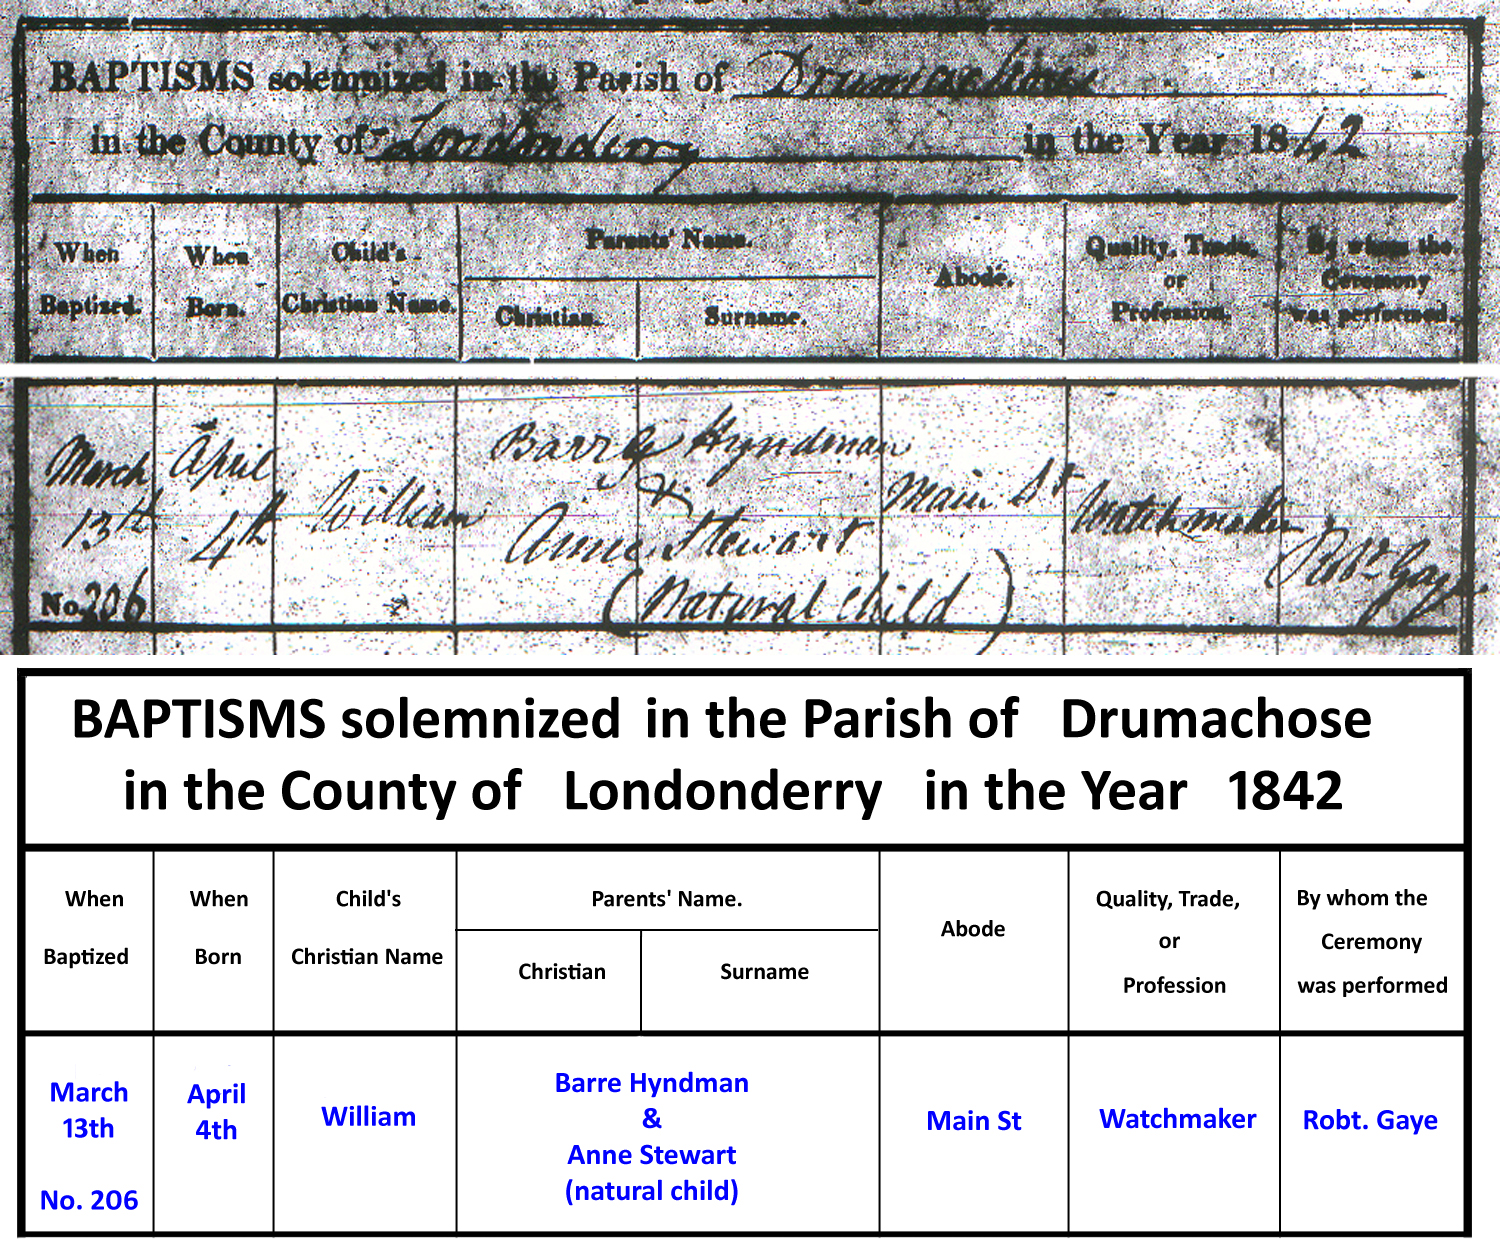 BAPTISMS solemnized in the Parish of Drumachose
in the County of Londonderry in the Year 1842
When Baptized.
When Born.
Child's Christian Name.
Parents' Name.
Christian.
Surname.
Abode.
Quality, Trade, or Profession.
By whom the Ceremony was performed.
March 13th
No. 206
April 4th
William
Barry Hyndman
&
Anne Stewart
(Natural child)
Main St
Watchmaker
Robt. Gaye
BAPTISMS solemnized in the Parish of Drumachose
in the County of Londonderry in the Year 1842
When
Baptized
When
Born
Child's
Christian Name
Parents' Name.
Christian
Surname
Abode
Quality, Trade,
or
Profession
By whom the
Ceremony
was performed
March
13th
No. 206
April
4th
William
Barre Hyndman
&
Anne Stewart
(natural child)
Main St
Watchmaker
Robt. Gaye